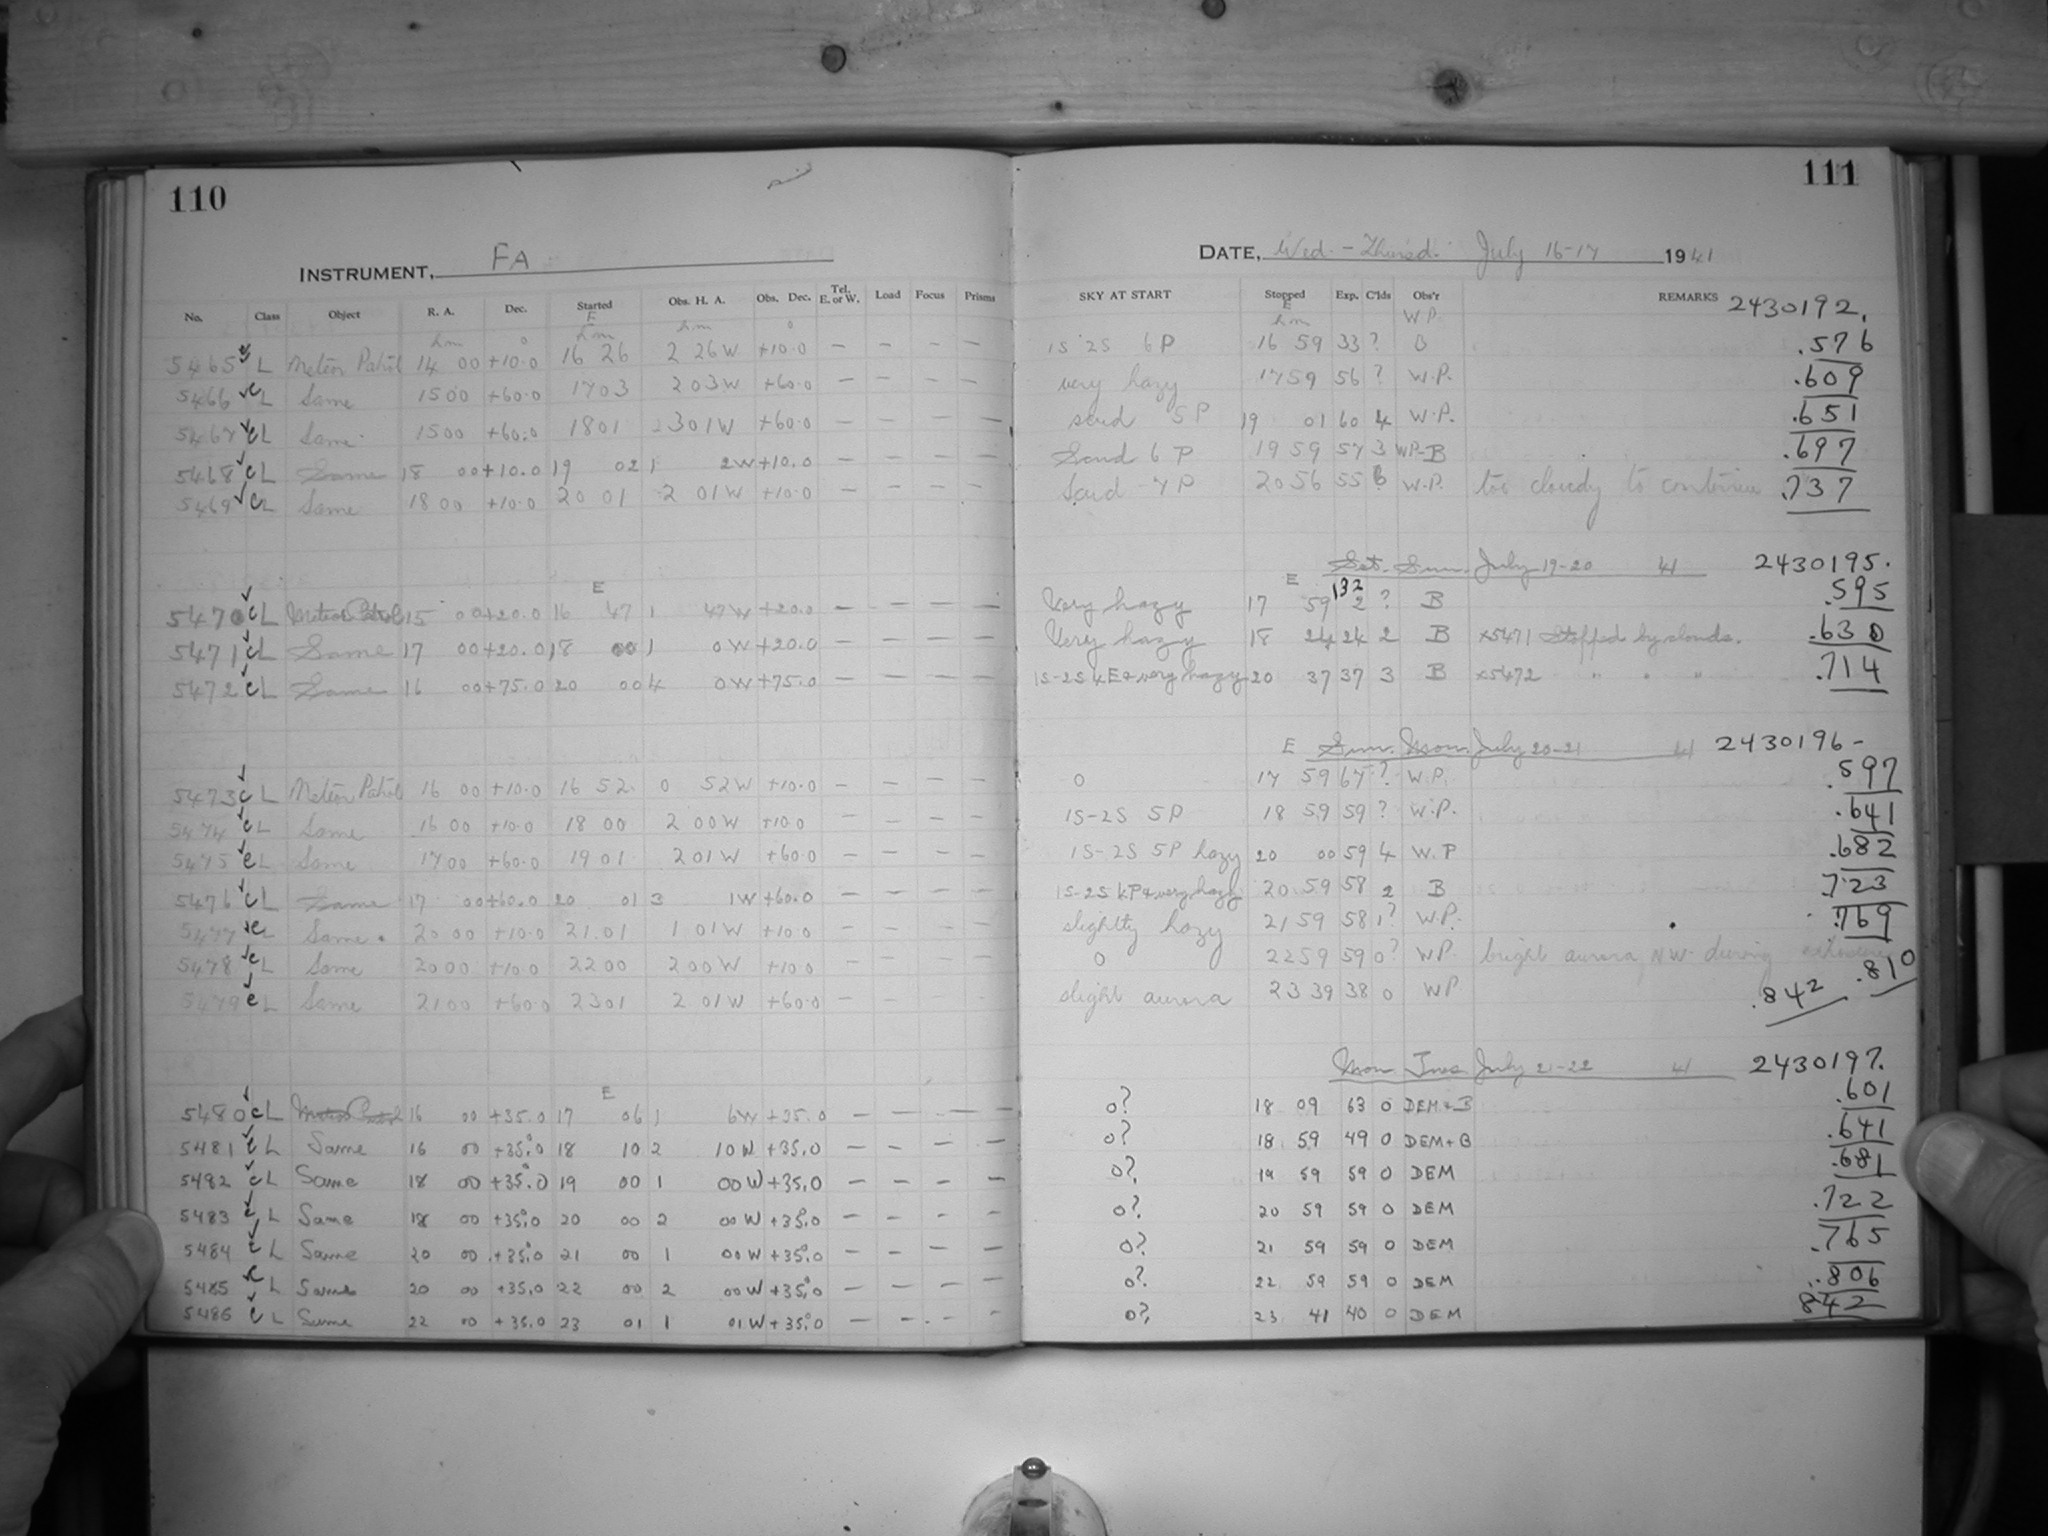 110
INSTRUMENT, FA
No. Class Object R. A. Dec. Started Obs. H. A. Obs. Dec. Tel. E. or W. Load Focus Prisms
h m ° E h m h m °
5465 L Meteor Patrol 14 00 +10.0 16 26 2 26W +10.0 — — — —
5466 c L Same 15 00 +60.0 17 03 2 03W +60.0 — — — —
5467 c L Same 15 00 +60.0 18 01 301W +60.0 — — — —
5468 c L Same 18 00 +10.0 19 02 1 2W +10.0 — — — —
5469 c L Same 18 00 +10.0 20 01 2 01W +10.0 — — — —
E
5470 c L Meteor Patrol 15 00 +20.0 16 47 1 47W +20.0 — — — —
5471 c L Same 17 00 +20.0 18 00 1 0W +20.0 — — — —
5472 c L Same 16 00 +75.0 20 00 4 0W +75.0 — — — —
5473 c L Meteor Patrol 16 00 +10.0 16 52 0 52W +10.0 — — — —
5474 c L Same 16 00 +10.0 18 00 2 00W +10.0 — — — —
5475 c L Same 17 00 +60.0 19 01 2 01W +60.0 — — — —
5476 c L Same 17 00 +60.0 20 01 3 1W +60.0 — — — —
5477 c L Same 20 00 +10.0 21 01 1 01W +10.0 — — — —
5478 c L Same 20 00 +10.0 22 00 2 00W +10.0 — — — —
5479 c L Same 21 00 +60.0 23 01 2 01W +60.0 — — — —
E
5480 c L Meteor Patrol 16 00 +35.0 17 06 1 6W +35.0 — — — —
5481 c L Same 16 00 +35.0 18 10 2 10W +35.0 — —
5482 c L Same 18 00 +35.0 19 00 1 00W +35.0 — — — —
5483 c L Same 18 00 +35.0 20 00 2 00W +35.0 — — — —
5484 c L Same 20 00 +35.0 21 00 1 00W +35.0 — — — —
5485 c L Same 20 00 +35.0 22 00 2 00W +35.0 — — — —
5486 c L Same 22 00 +35.0 23 01 1 01W +35.0 — — — —
111
DATE, Wed. - Thursd. July 16-17 1941
SKY AT START Stopped Exp. C'lds Obs'r REMARKS 2430192.
E h m W P
1S 2S 6P 16 59 33 ? B .576
very hazy 17 59 56 ? W.P. .609
scud 5P 19 01 60 4 W.P. .651
Scud 6 P 19 59 57 3 WP-B .697
Scud 7P 20 56 55 6 W.P. too cloudy to continue .737
Sat. Sun. July 19-20 41 2430195.
E 132
Very hazy 17 59 2 ? B .595
Very hazy 18 24 24 2 B x5471 Stopped by clouds. .630
1S-2S kE+very hazy 20 37 37 3 B x5472 " " " .714
E Sun. Mon. July 20-21 41 2430196-
0 17 59 67 ? W.P. .597
1S-2S 5P 18 59 59 ? W.P. .641
1S-2S 5P hazy 20 00 59 4 W.P .682
1S-2S kP+very hazy 20 59 58 2 B .723
slightly hazy 21 59 58 1? W.P. .769
0 22 59 59 0? WP. bright aurora NW during .810
slight aurora 23 39 38 0 WP .842
Mon Tues July 21-22 41 2430197.
0? 18 09 63 0 DEM+B .601
0? 18 59 49 0 DEM+B .641
0? 19 59 59 0 DEM .681
0? 20 59 59 0 DEM .722
0? 21 59 59 0 DEM .765
0? 22 59 59 0 DEM .806
0? 23 41 40 0 DEM 842